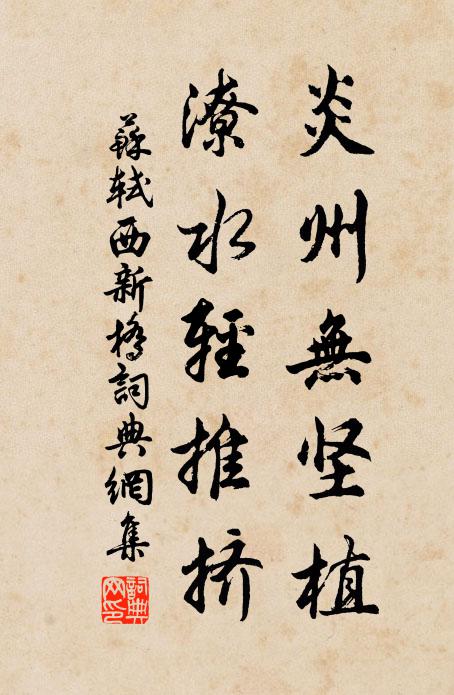 炎州無坚植
潦水輕推挤
蘇軾西新橋詞典網集
詞典網印